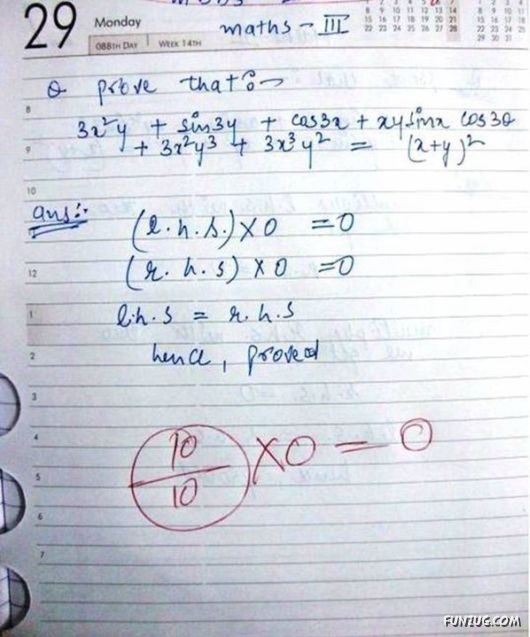 29
Monday
088TH DAY
WEEK 14TH
maths - III
Q prove that :-
3x²y + sin3y + cos3x + xysinx cos3θ
+ 3x²y³ + 3x³y² = (x+y)²
ans:-
(l.h.s.) × 0 = 0
(r.h.s) × 0 = 0
l.h.s = r.h.s
hence, proved
10/10 × 0 = 0
8
9
10
12
1
2
3
4
5
6
7
FUNZUG.COM